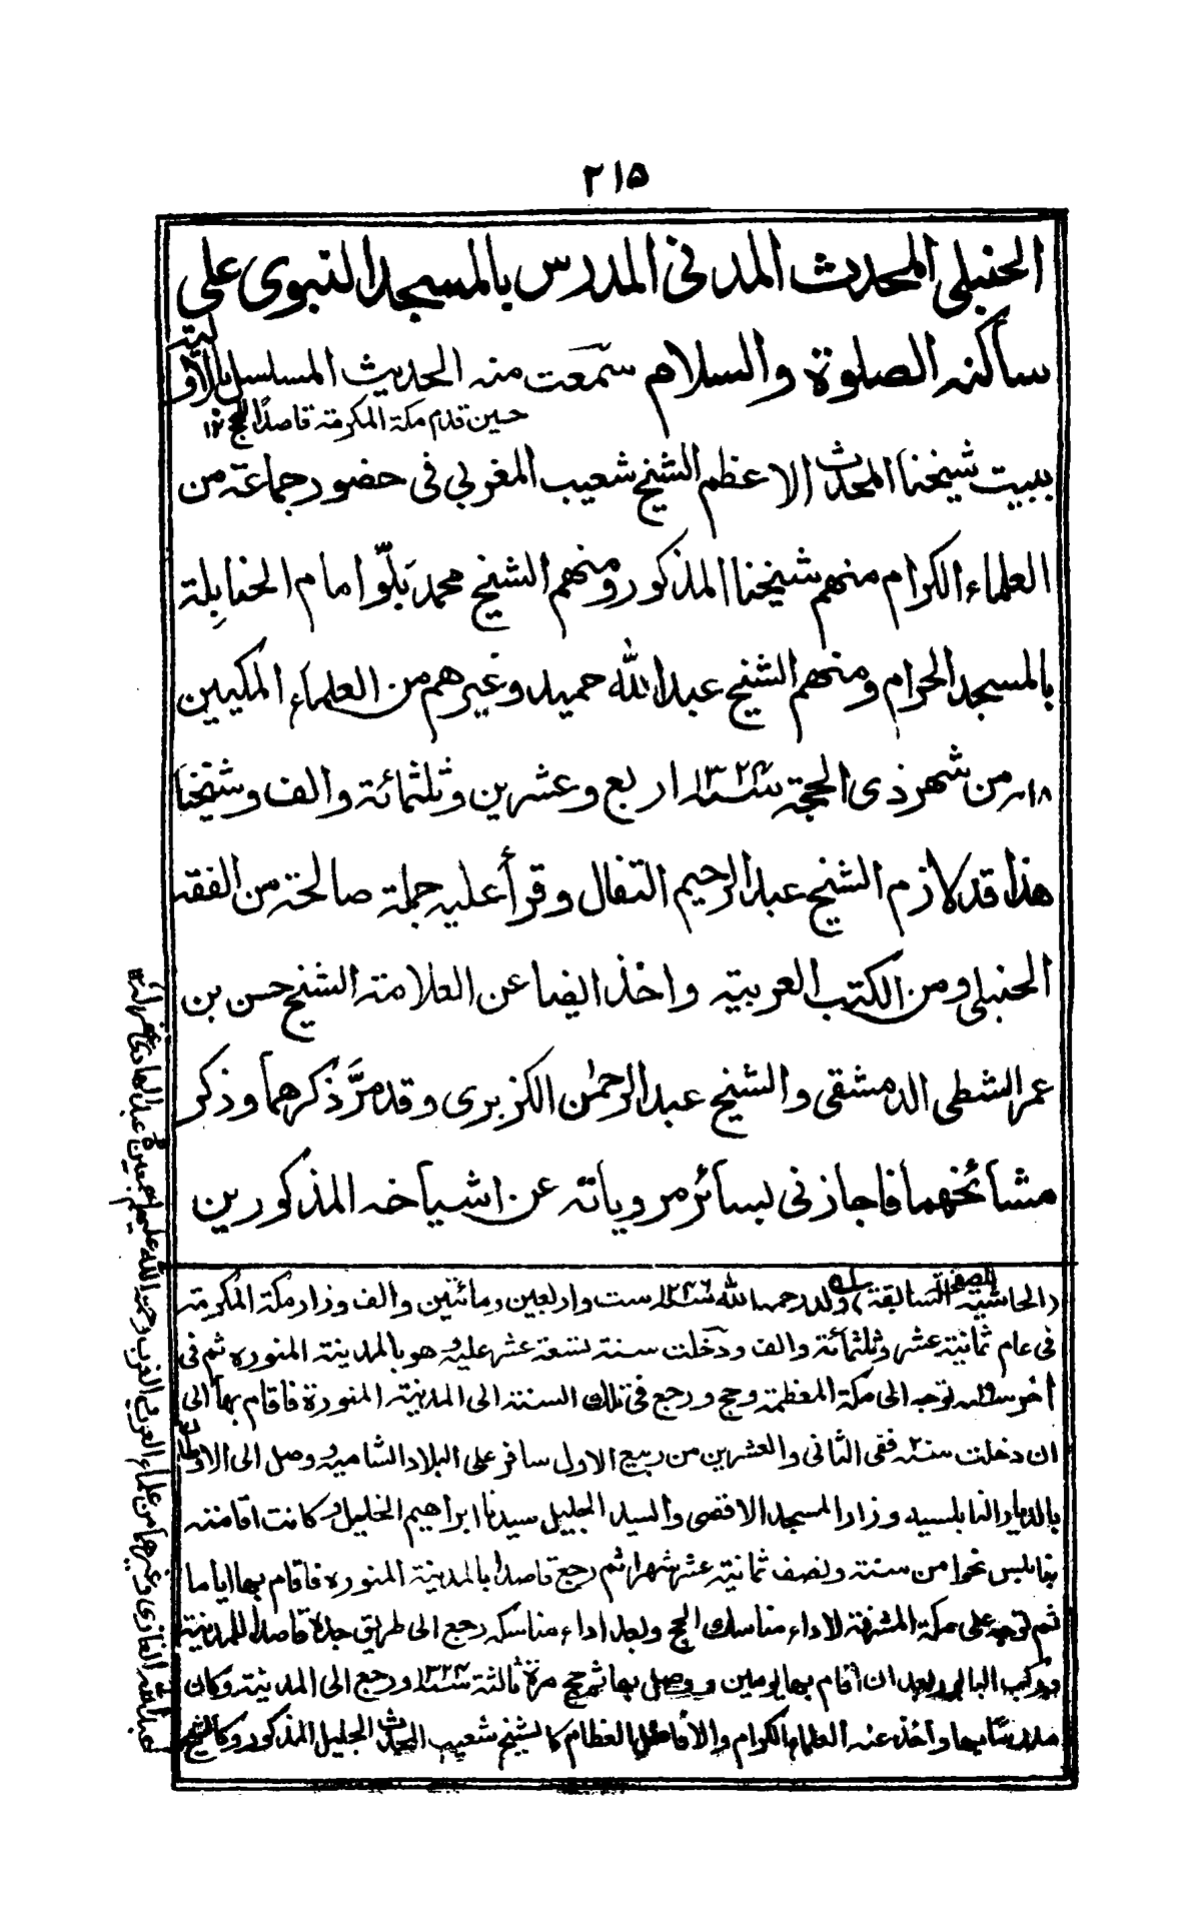 ٢١٥
الحنبلي المحدث المدنى المدرس بالمسجد النبوى على
ساكنه الصلوة والسلام سمعت منه الحديث المسلسل بالأولية
حين قدم مكة المكرمة قاصدًا الحج ١٢
ببيت شيخنا المحدث الاعظم الشيخ شعيب المغربي فى حضور جماعة من
العلماء الكرام منهم شيخنا المذكور ومنهم الشيخ محمد بَلّو امام الحنابِلة
بالمسجد الحرام ومنهم الشيخ عبد الله حميد وغيرهم من العلماء المكيين
١٨ من شهر ذى الحجة سنة ١٣٢٤ اربع وعشرين وثلثمائة والف وشيخنا
هذا قد لازم الشيخ عبد الرحيم التفال وقرأ عليه جملة صالحة من الفقه
الحنبلى ومن الكتب العربية واخذ ايضا عن العلامة الشيخ حسن بن
عمر الشطى الدمشقى والشيخ عبد الرحمٰن الكزبرى وقد مرَّ ذكرهما وذكر
مشائخهما فاجازنى بسائر مروياته عن اشياخه المذكورين
(الحاشية السابقة) ولد رحمه الله سنة ١٢٤٦ ست واربعين ومائتين والف وزار مكة المكرمة
فى عام ثمانية عشر وثلثمائة والف ودخلت سنة تسعة عشر عليه وهو بالمدينة المنوره ثم فى
آخر سنة ١٩ توجه الى مكة المعظمة وحج ورجع فى تلك السنة الى المدينة المنورة فاقام بها الى
ان دخلت سنة ٢٠ ففى الثانى والعشرين من ربيع الاول سافر على البلاد الشاميه وصل الى الاوطان
بالديار النابلسيه وزار المسجد الاقصى والسيد الجليل سيدنا ابراهيم الخليل وكانت اقامته
بنابلس نحوا من سنة ونصف ثمانية عشر شهرا ثم رجع قاصدا بالمدينة المنوره فاقام بها اياما
ثم توجه على مكة المشرفة لاداء مناسك الحج وبعد اداء مناسكه رجع الى طريق جدة قاصدا للمدينة
وركب البابور بعد ان اقام بها يومين ووصل بها ثم حج مرة ثالثة سنة ١٣٢٤ ورجع الى المدينة وكان
مدرسًا بها واخذ عنه العلماء الكرام والافاضل العظام كالشيخ شعيب المحدث الجليل المذكور وكالشيخ
عبد الله الغازى وغيرهما من علماء العرب والغرب رحمة الله عليهم اجمعين عبد الهادى غفر له